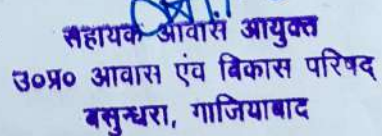 सहायक आवास आयुक्त
उ०प्र० आवास एंव बिकास परिषद्
बसुन्धरा, गाजियाबाद